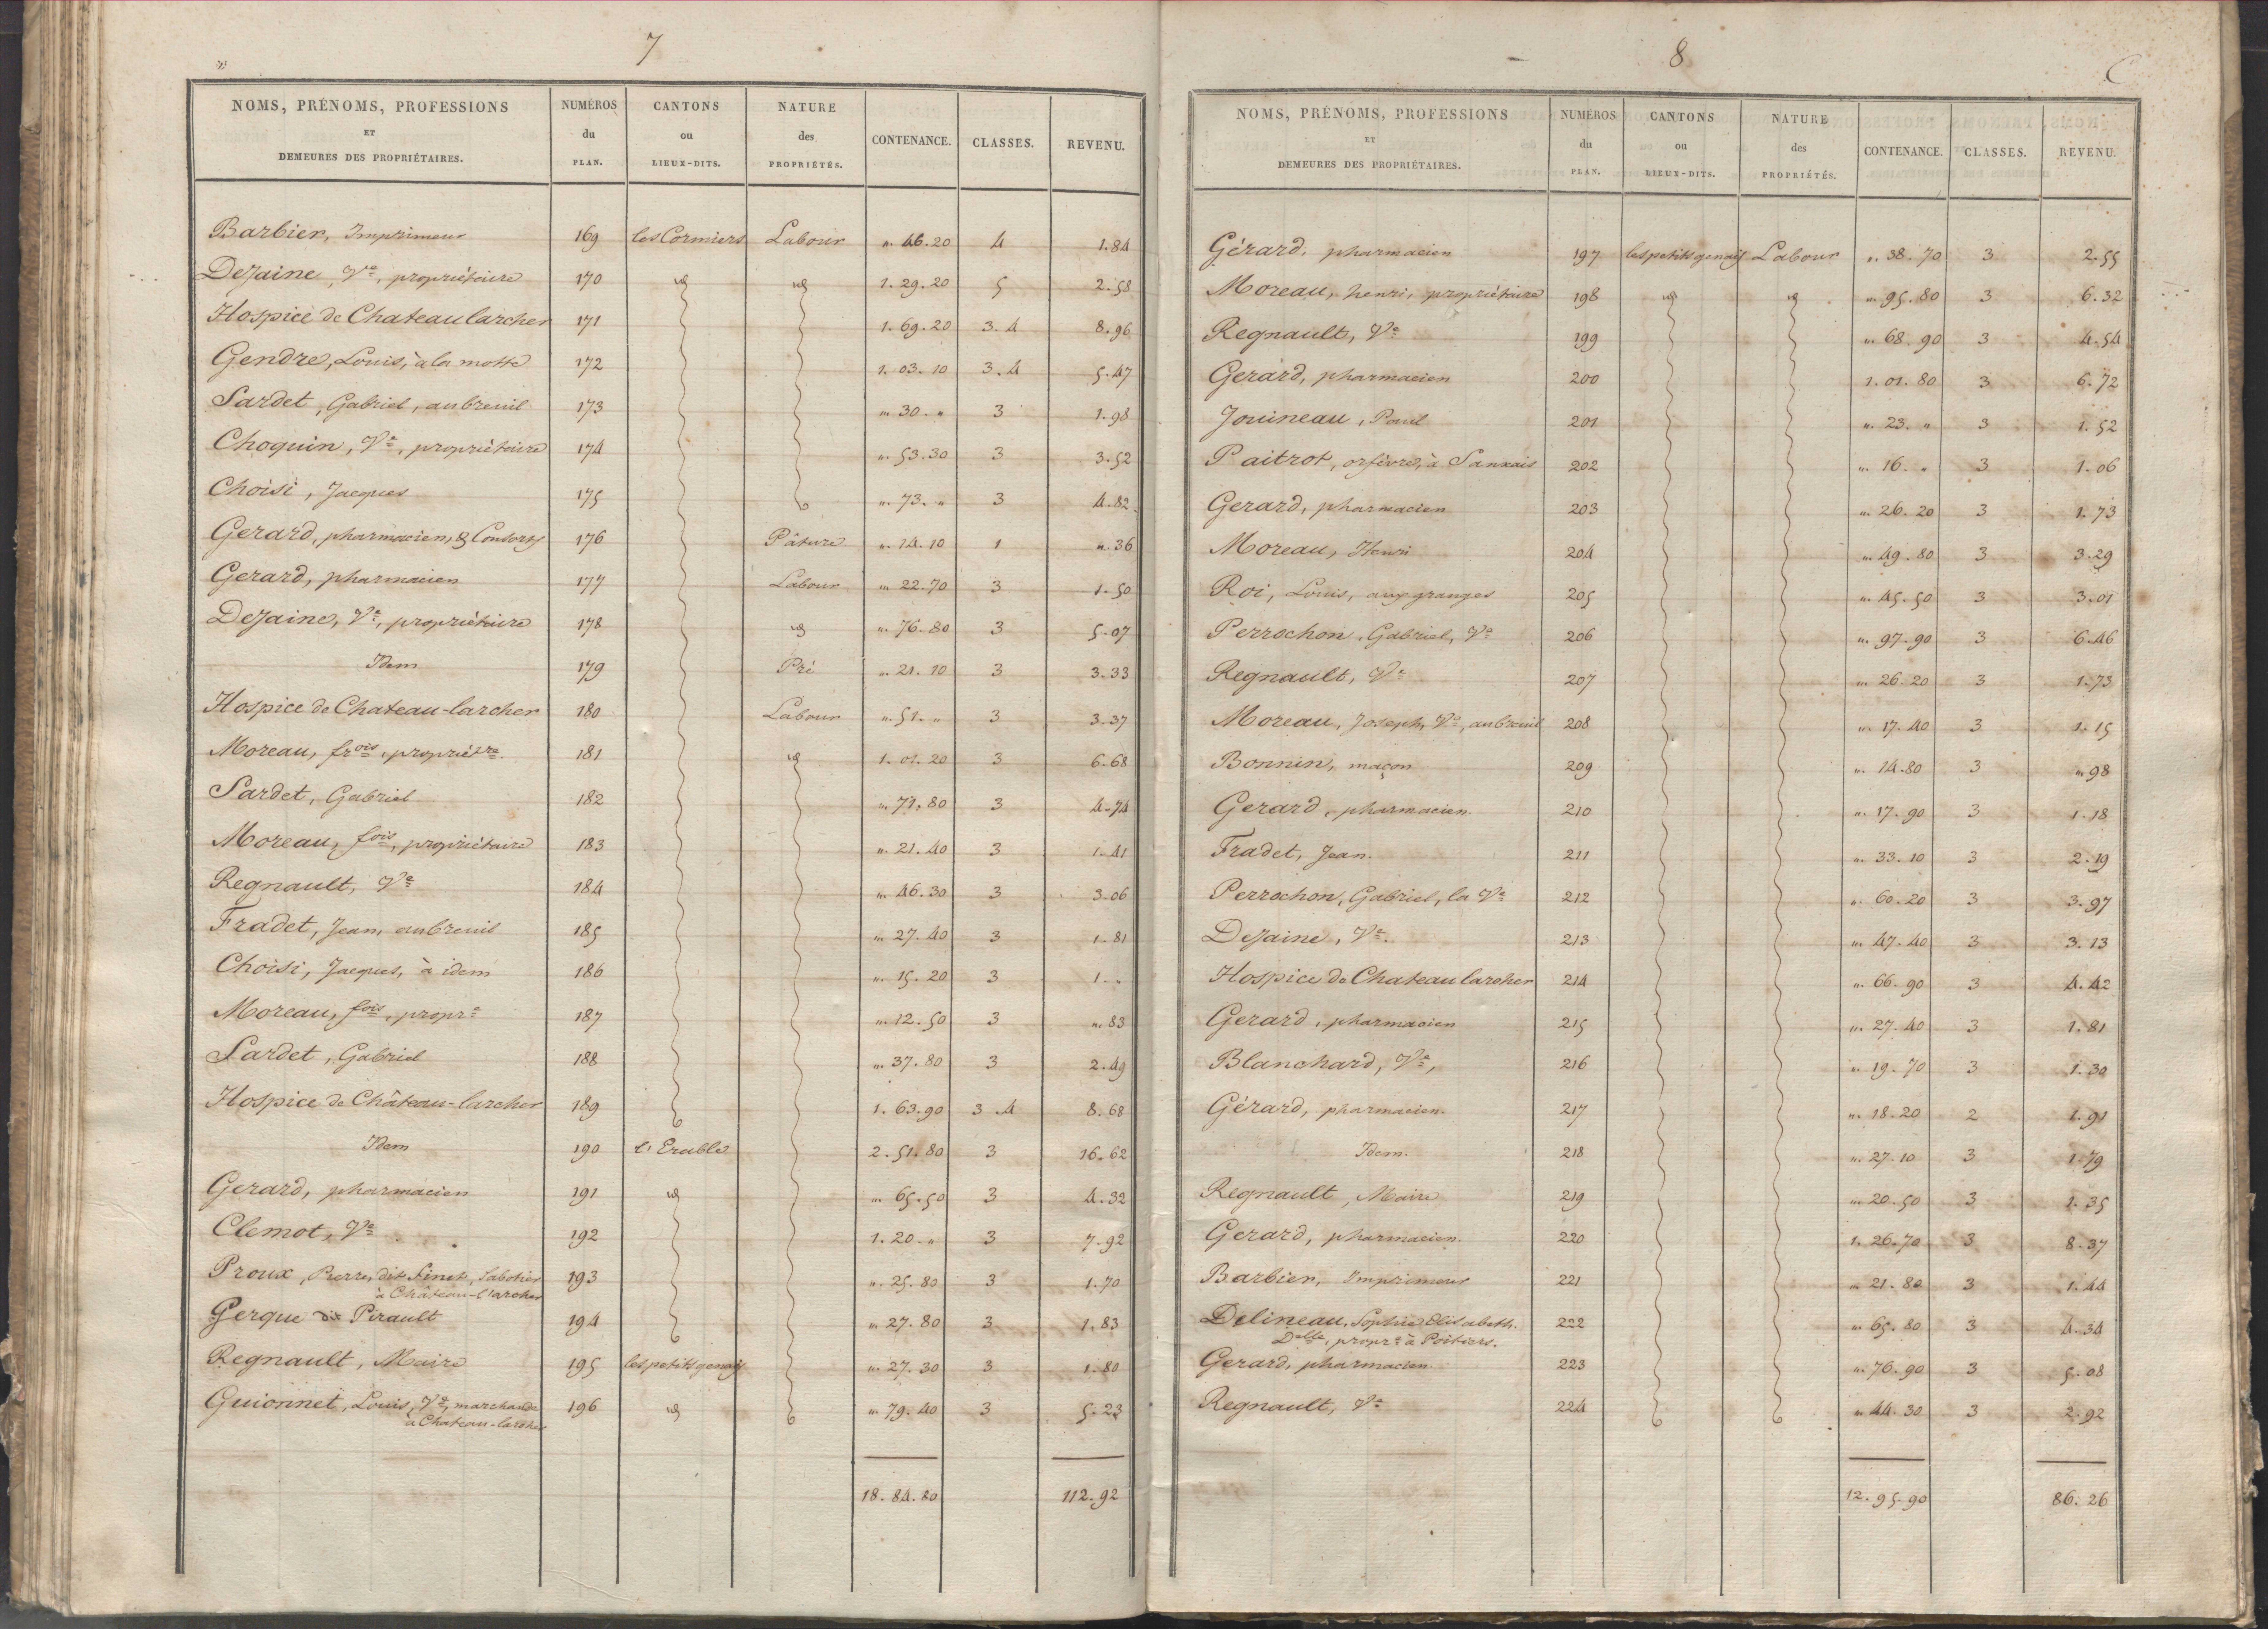 7
NOMS, PRÉNOMS, PROFESSIONS ET DEMEURES DES PROPRIÉTAIRES. NUMÉROS du PLAN. CANTONS ou LIEUX-DITS. NATURE des PROPRIÉTÉS. CONTENANCE. CLASSES. REVENU.
Barbier, Imprimeur 169 les Cormiers Labour ". 46. 20 4 1. 84
Dezaine, Ve, propriétaire 170 id id 1. 29. 20 5 2. 58
Hospice de Chateaularcher 171 1. 69. 20 3. 4 8. 96
Gendre, Louis, à la motte 172 1. 03. 10 3. 4 5. 47
Sardet, Gabriel, aubreuil 173 " 30. " 3 1. 98
Choquin, Ve, propriétaire 174 ". 53. 30 3 3. 52
Choisi, Jacques 175 ". 73. " 3 4. 82
Gerard, pharmacien, & Consorts 176 Pâture ". 14. 10 1 ". 36
Gerard, pharmacien 177 Labour " 22. 70 3 1. 50
Dezaine, Ve, propriétaire 178 id ". 76. 80 3 5. 07
Idem 179 Pré ". 21. 10 3 3. 33
Hospice de Chateau-larcher 180 Labour ". 51. " 3 3. 37
Moreau, frois, propriétre 181 id 1. 01. 20 3 6. 68
Sardet, Gabriel 182 " 71. 80 3 4. 74
Moreau, fois, propriétaire 183 ". 21. 40 3 1. 41
Regnault, Ve 184 ". 46. 30 3 3. 06
Fradet, Jean, aubreuil 185 " 27. 40 3 1. 81
Choisi, Jacques, à idem 186 ". 15. 20 3 1. "
Moreau, fois, propre 187 ". 12. 50 3 ". 83
Sardet, Gabriel 188 ". 37. 80 3 2. 49
Hospice de Château-larcher 189 1. 63. 90 3. 4 8. 68
Idem 190 l'Erable 2. 51. 80 3 16. 62
Gerard, pharmacien 191 id " 65. 50 3 4. 32
Clemot, Ve 192 1. 20. " 3 7. 92
Proux, Pierre, dit Finet, Sabotier 193 ". 25. 80 3 1. 70
à Château-l'archer
Gerque dit Pirault 194 " 27. 80 3 1. 83
Regnault, Maire 195 les petits genais ". 27. 30 3 1. 80
Guionnet, Louis, Ve, marchande 196 id " 79. 40 3 5. 23
à Chateau-larcher
18. 84. 80 112. 92
8
C
NOMS, PRÉNOMS, PROFESSIONS ET DEMEURES DES PROPRIÉTAIRES. NUMÉROS du PLAN. CANTONS ou LIEUX-DITS. NATURE des PROPRIÉTÉS. CONTENANCE. CLASSES. REVENU.
Gérard, pharmacien 197 les petits genais Labour ". 38. 70 3 2. 55
Moreau, henri, propriétaire 198 id id ". 95. 80 3 6. 32
Regnault, Ve 199 " 68. 90 3 4. 54
Gerard, pharmacien 200 1. 01. 80 3 6. 72
Jouineau, Paul 201 ". 23. " 3 1. 52
Paitrot, orfèvre, à Sanxais 202 ". 16. " 3 1. 06
Gerard, pharmacien 203 ". 26. 20 3 1. 73
Moreau, Henri 204 " 49. 80 3 3. 29
Roi, Louis, aux granges 205 ". 45. 50 3 3. 01
Perrochon, Gabriel, Ve 206 ". 97. 90 3 6. 46
Regnault, Ve 207 " 26. 20 3 1. 73
Moreau, Joseph, Ve, aubreuil 208 ". 17. 40 3 1. 15
Bonnin, maçon 209 ". 14. 80 3 ". 98
Gerard, pharmacien. 210 ". 17. 90 3 1. 18
Fradet, Jean. 211 ". 33. 10 3 2. 19
Perrochon, Gabriel, la Ve 212 ". 60. 20 3 3. 97
Dezaine, Ve. 213 ". 47. 40 3 3. 13
Hospice de Chateaularcher 214 ". 66. 90 3 4. 42
Gerard, pharmacien 215 ". 27. 40 3 1. 81
Blanchard, Ve, 216 ". 19. 70 3 1. 30
Gérard, pharmacien. 217 ". 18. 20 2 1. 91
Idem. 218 ". 27. 10 3 1. 79
Regnault, Maire 219 " 20. 50 3 1. 35
Gerard, pharmacien. 220 1. 26. 70 3 8. 37
Barbier, Imprimeur 221 " 21. 80 3 1. 44
Delineau, Sophie Elisabeth. 222 ". 65. 80 3 4. 34
Delle, propre à Poitiers.
Gerard, pharmacien. 223 ". 76. 90 3 5. 08
Regnault, Ve 224 " 44. 30 3 2. 92
12. 95. 90 86. 26